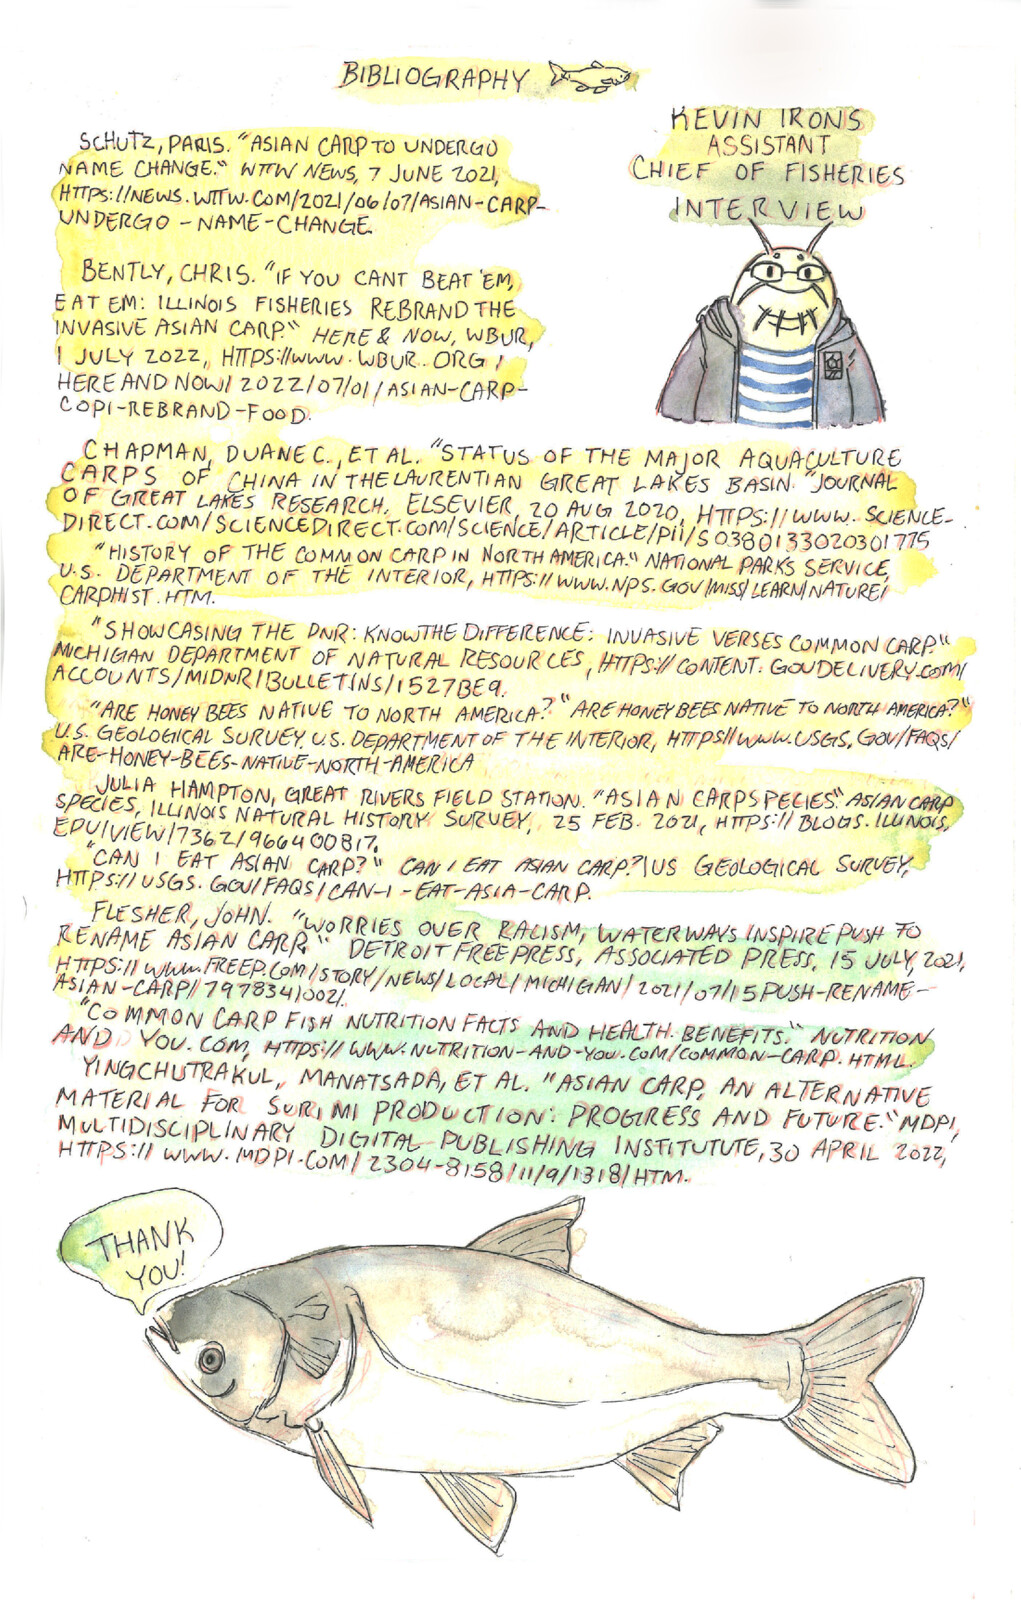 BIBLIOGRAPHY
KEVIN IRONS
ASSISTANT
CHIEF OF FISHERIES
INTERVIEW
SCHUTZ, PARIS. "ASIAN CARP TO UNDERGO
NAME CHANGE." WTTW NEWS, 7 JUNE 2021,
HTTPS://NEWS.WTTW.COM/2021/06/07/ASIAN-CARP-
UNDERGO-NAME-CHANGE
BENTLY, CHRIS. "IF YOU CANT BEAT 'EM,
EAT EM: ILLINOIS FISHERIES REBRAND THE
INVASIVE ASIAN CARP." HERE & NOW, WBUR,
1 JULY 2022, HTTPS://WWW.WBUR.ORG/
HEREANDNOW/2022/07/01/ASIAN-CARP-
COPI-REBRAND-FOOD.
CHAPMAN, DUANE C., ET AL. "STATUS OF THE MAJOR AQUACULTURE
CARPS OF CHINA IN THE LAURENTIAN GREAT LAKES BASIN." JOURNAL
OF GREAT LAKES RESEARCH, ELSEVIER, 20 AUG 2020, HTTPS://WWW.SCIENCE-
DIRECT.COM/SCIENCEDIRECT.COM/SCIENCE/ARTICLE/PII/S0380133020301775
"HISTORY OF THE COMMON CARP IN NORTH AMERICA." NATIONAL PARKS SERVICE,
U.S. DEPARTMENT OF THE INTERIOR, HTTPS://WWW.NPS.GOV/MISS/LEARN/NATURE/
CARPHIST.HTM.
"SHOWCASING THE DNR: KNOW THE DIFFERENCE: INVASIVE VERSES COMMON CARP."
MICHIGAN DEPARTMENT OF NATURAL RESOURCES, HTTPS://CONTENT.GOVDELIVERY.COM/
ACCOUNTS/MIDNR/BULLETINS/1527BE9.
"ARE HONEY BEES NATIVE TO NORTH AMERICA?" "ARE HONEY BEES NATIVE TO NORTH AMERICA?"
U.S. GEOLOGICAL SURVEY, U.S. DEPARTMENT OF THE INTERIOR, HTTPS://WWW.USGS.GOV/FAQS/
ARE-HONEY-BEES-NATIVE-NORTH-AMERICA
JULIA HAMPTON, GREAT RIVERS FIELD STATION. "ASIAN CARP SPECIES." ASIAN CARP
SPECIES, ILLINOIS NATURAL HISTORY SURVEY, 25 FEB. 2021, HTTPS://BLOGS.ILLINOIS.
EDU/VIEW/7362/966400817.
"CAN I EAT ASIAN CARP?" CAN I EAT ASIAN CARP?|US GEOLOGICAL SURVEY,
HTTPS://USGS.GOV/FAQS/CAN-I-EAT-ASIA-CARP.
FLESHER, JOHN. "WORRIES OVER RACISM, WATERWAYS INSPIRE PUSH TO
RENAME ASIAN CARP." DETROIT FREE PRESS, ASSOCIATED PRESS, 15 JULY, 2021,
HTTPS://WWW.FREEP.COM/STORY/NEWS/LOCAL/MICHIGAN/2021/07/15PUSH-RENAME-
ASIAN-CARP//7978341002/.
"COMMON CARP FISH NUTRITION FACTS AND HEALTH BENEFITS." NUTRITION
AND YOU.COM, HTTPS://WWW.NUTRITION-AND-YOU.COM/COMMON-CARP.HTML.
YINGCHUTRAKUL, MANATSADA, ET AL. "ASIAN CARP, AN ALTERNATIVE
MATERIAL FOR SURIMI PRODUCTION: PROGRESS AND FUTURE." MDPI,
MULTIDISCIPLINARY DIGITAL PUBLISHING INSTITUTUTE, 30 APRIL 2022,
HTTPS://WWW.MDPI.COM/2304-8158/11/9/1318/HTM.
THANK
YOU!